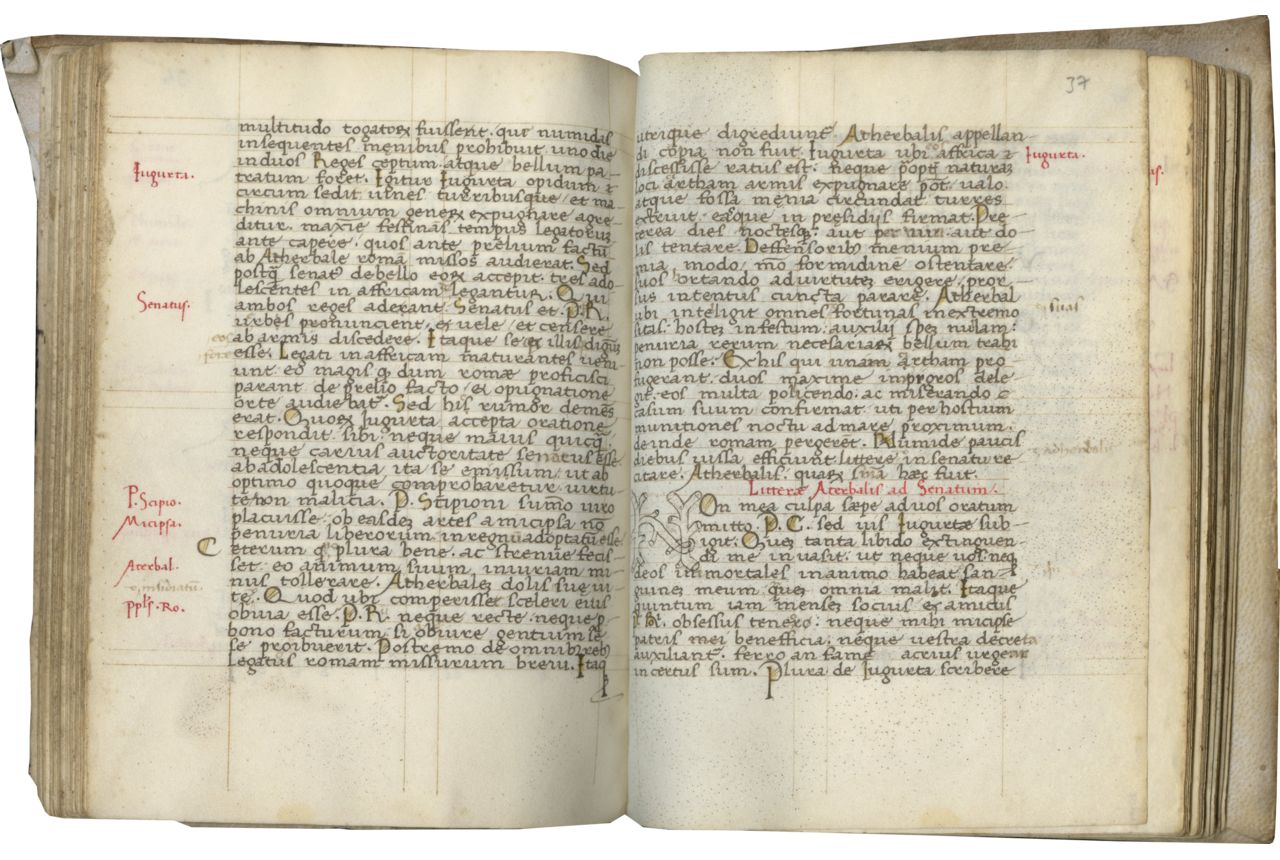 multitudo togatoꝝ fuissent. que numidas
insequentes menibus prohibuit uno die
induos Reges ceptum atque bellum pa-
tratum foret. Igitur Iugurta opidum &
circum sedit uineis turribusque / et ma-
chinis omnium geneꝝ expugnare agre-
ditur. maxĩe festinãs tempus legatorum
ante capere. quos ante prelium factũ
ab Atherbale romã missos audierat. Sed
postꝗ̃ senatꝰ debello eoꝝ accepit. tres ado-
lescentes in affricam legantur. Qui
ambos reges aderant. Senatus et .P.R.
uerbis pronuncient. et uele / et censere
ab armis discedere. Itaque se ex illis dignũ
esse. Legati in affricam maturantes ueni-
unt eo magis ꝗ dum romæ proficisci
parant de prelio facto / et opugnatione
Cirte audiebãt. Sed his rumor clemẽs
erat. Quoꝝ Iugurta accepta oratione
respondit. sibi neque maius quicꝗ̃
neque carius auctoritate senatus esse.
ab adolescentia ita se emissum. ut ab
optimo quoque comprobaretur uirtu-
te non malicia. P. Scipioni sumõ uiro
placuisse. ob easdez artes a micipsa nõ
penuria liberorum in regnũ adoptatũ esse
Ceterum ꝙ plura bene. ac strenue fecis-
set. eo animum suum iniuriam mi-
nus tollerare. Atherbalez dolis sue ui-
te. Quod ubi comperisset sceleri eius
obuia esse. P.R. neque recte. neque p
bono facturum si abiure gentium se-
se proibuerit. Postremo de omnibꝰ rebꝰ
legatus romam missurum breui. Itaq
Iugurta.
Senatus.
P. Scipio.
Micipsa.
Aterbal.
insidiatũ
Ppls. Ro.
37
utrique digrediunt̃. Atherbalis appellan-
di copia non fuit. Iugurta ubi eos affrica &
discessisse ratus est. neque ꝓpter naturaz
loci ãrtham armis expugnare põt. ualo
atque fossa mẽnia circundat turres
extruit. easque in presidijs firmat. Pre-
terea dies noctesque aut per uim aut do-
lis tentare. Deffensoribꝰ menium pre-
mia modo. mõ formidine ostentare.
suos ortando ad uirtutez erigere. pror-
sus intentus cuncta parare. Atherbal
ubi inteligit omnes fortunas in extremo
sitas. hostez infestum. auxilij spez nulam.
penuria rerum necesariaꝝ bellum trahi
non posse. Ex his qui unam ãrtham pro-
fugerant. duos maxime impigros dele-
git. eos multa policendo. ac miserando
casum suum confirmat. uti per hostium
munitiones noctu ad mare proximum.
deinde romam pergerẽt. Numide paucis
diebus iussa efficiunt littere in senatu re-
citate. Atherbalis. quaꝝ snĩa hæc fuit.
Litteræ Aterbalis ad Senatum.
Non mea culpa sæpe ad uos oratum
mitto. P.C. sed uis Iugurtæ sub-
igit. Quez tanta libido extinguen-
di me inuasit. ut neque uos neq
deos inmortales in animo habeat. san-
guinez meum quez omnia malit. Itaque
quintum iam mensez socius et amicus
P.R. obsessus teneor. neque mihi micipse
patris mei benefficia. neque uestra decreta
auxiliant̃. ferro an fame acrius urgear
incertus sum. Plura de Iugurta scribere
Iugurta.
situs
adherbalis